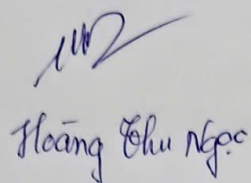 Hoàng Thu Ngọc